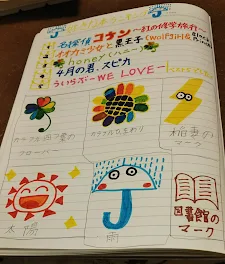 名探偵コナン〜紅の修学旅行〜
オオカミ少女と黒王子(Wolf girl &
honey(ハニー)
4月の君、スピカ
ういらぶーWE LOVEー
カラフル四つ葉の
クローバー
カラフルひまわり
稲妻の
マーク
太陽
雨
図書館の
マーク